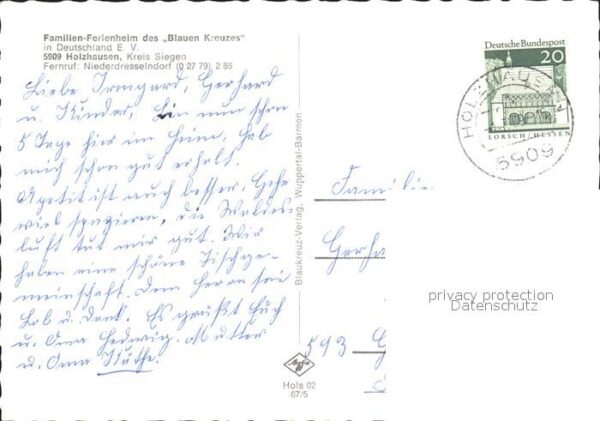 Familien-Ferienheim des „Blauen Kreuzes"
in Deutschland E. V.
5909 Holzhausen, Kreis Siegen
Fernruf: Niederdresselndorf (0 27 79) 2 86
Liebe Irmgard, Gerhard
u. Kinder, Bin nun schon
5 Tage hier im Heim, hab
mich schon gut erholt.
Apetit ist auch besser. Gehe
viel spazieren, die Waldes
luft tut mir gut. Wir
haben eine schöne Tischge-
meinschaft. Dem Herrn sei
Lob u. Dank. Es grüßt Euch
u. Oma Hedwig. Mutter
u. Oma Käthe.
Blaukreuz-Verlag, Wuppertal-Barmen
Deutsche Bundespost
20
LORSCH/HESSEN
HOLZHAUSEN
5909
Familie
Gerha
593 G
privacy protection
Datenschutz
Agfa
Hols 02
67/5